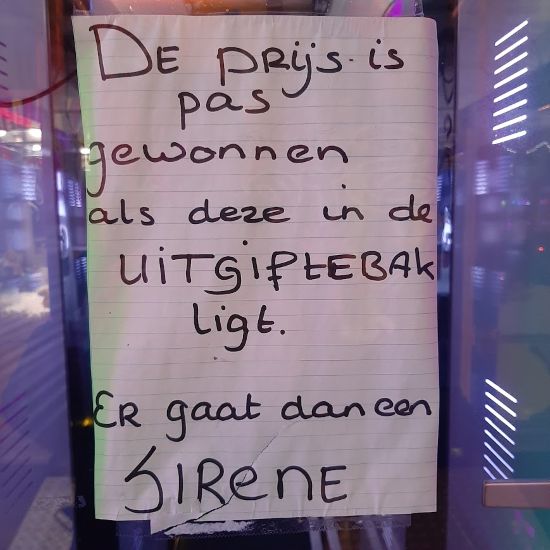 De prijs is
pas
gewonnen
als deze in de
UITGIFTEBAK
ligt.
Er gaat dan een
SIRENE